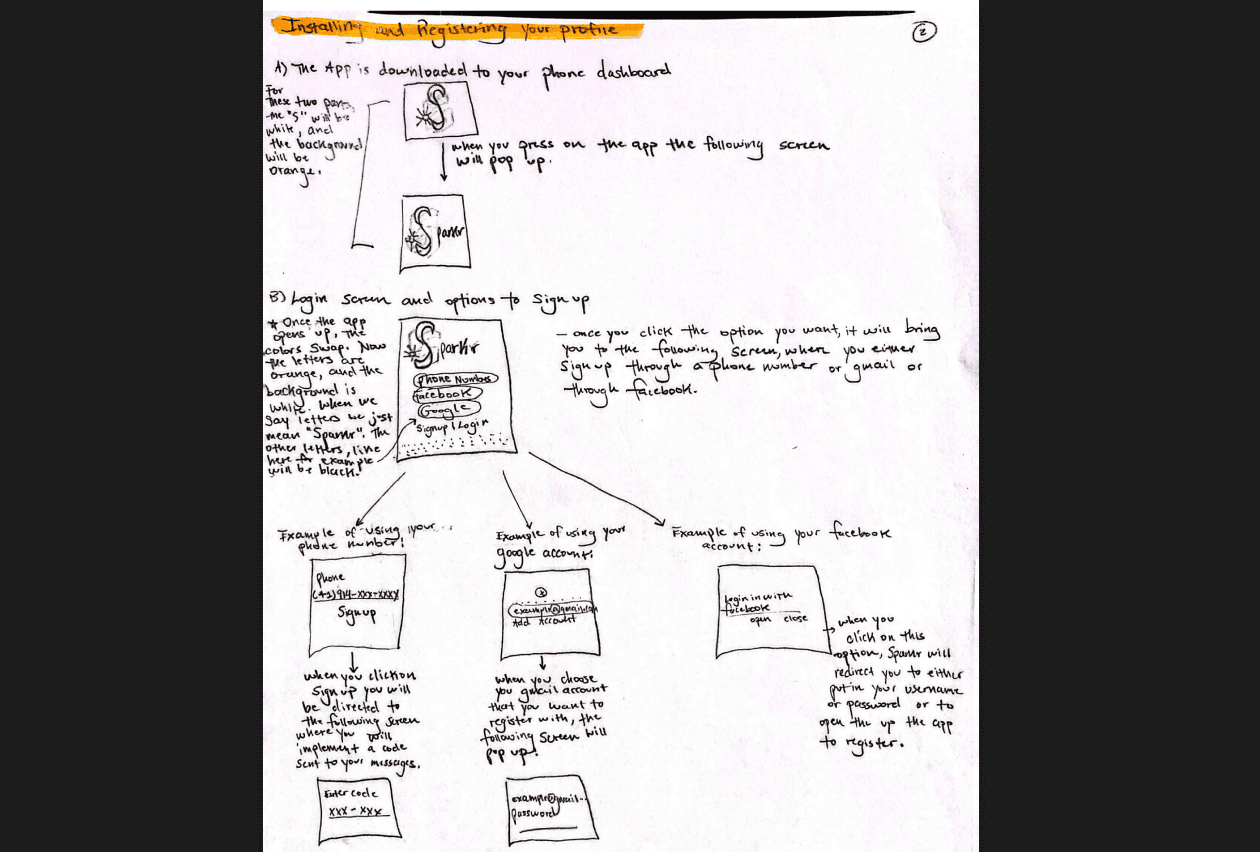 Installing and Registering your profile
2
A) The App is downloaded to your phone dashboard
For
these two parts
the "S" will be
white, and
the background
will be
orange.
S
when you press on the app the following screen
will pop up.
Sparkr
B) Login screen and options to sign up
* Once the app
opens up, the
colors swap. Now
the letters are
orange, and the
background is
white. When we
say letters we just
mean "Sparkr". The
other letters, like
here for example
will be black.
Sparkr
Phone Number
facebook
Google
Signup | Login
- once you click the option you want, it will bring
you to the following screen, where you either
sign up through a phone number or gmail or
through facebook.
Example of using your
phone number:
Phone
(+1)914-xxx-xxxx
Sign up
when you click on
Sign up you will
be directed to
the following screen
where you will
implement a code
sent to your messages.
Enter code
xxx - xxx
Example of using your
google account:
example@gmail.com
Add Account
when you choose
you gmail account
that you want to
register with, the
following screen will
pop up:
example@gmail--
password
Example of using your facebook
account:
Login in with
facebook
open close
when you
click on this
option, Sparkr will
redirect you to either
put in your username
or password or to
open the up the app
to register.